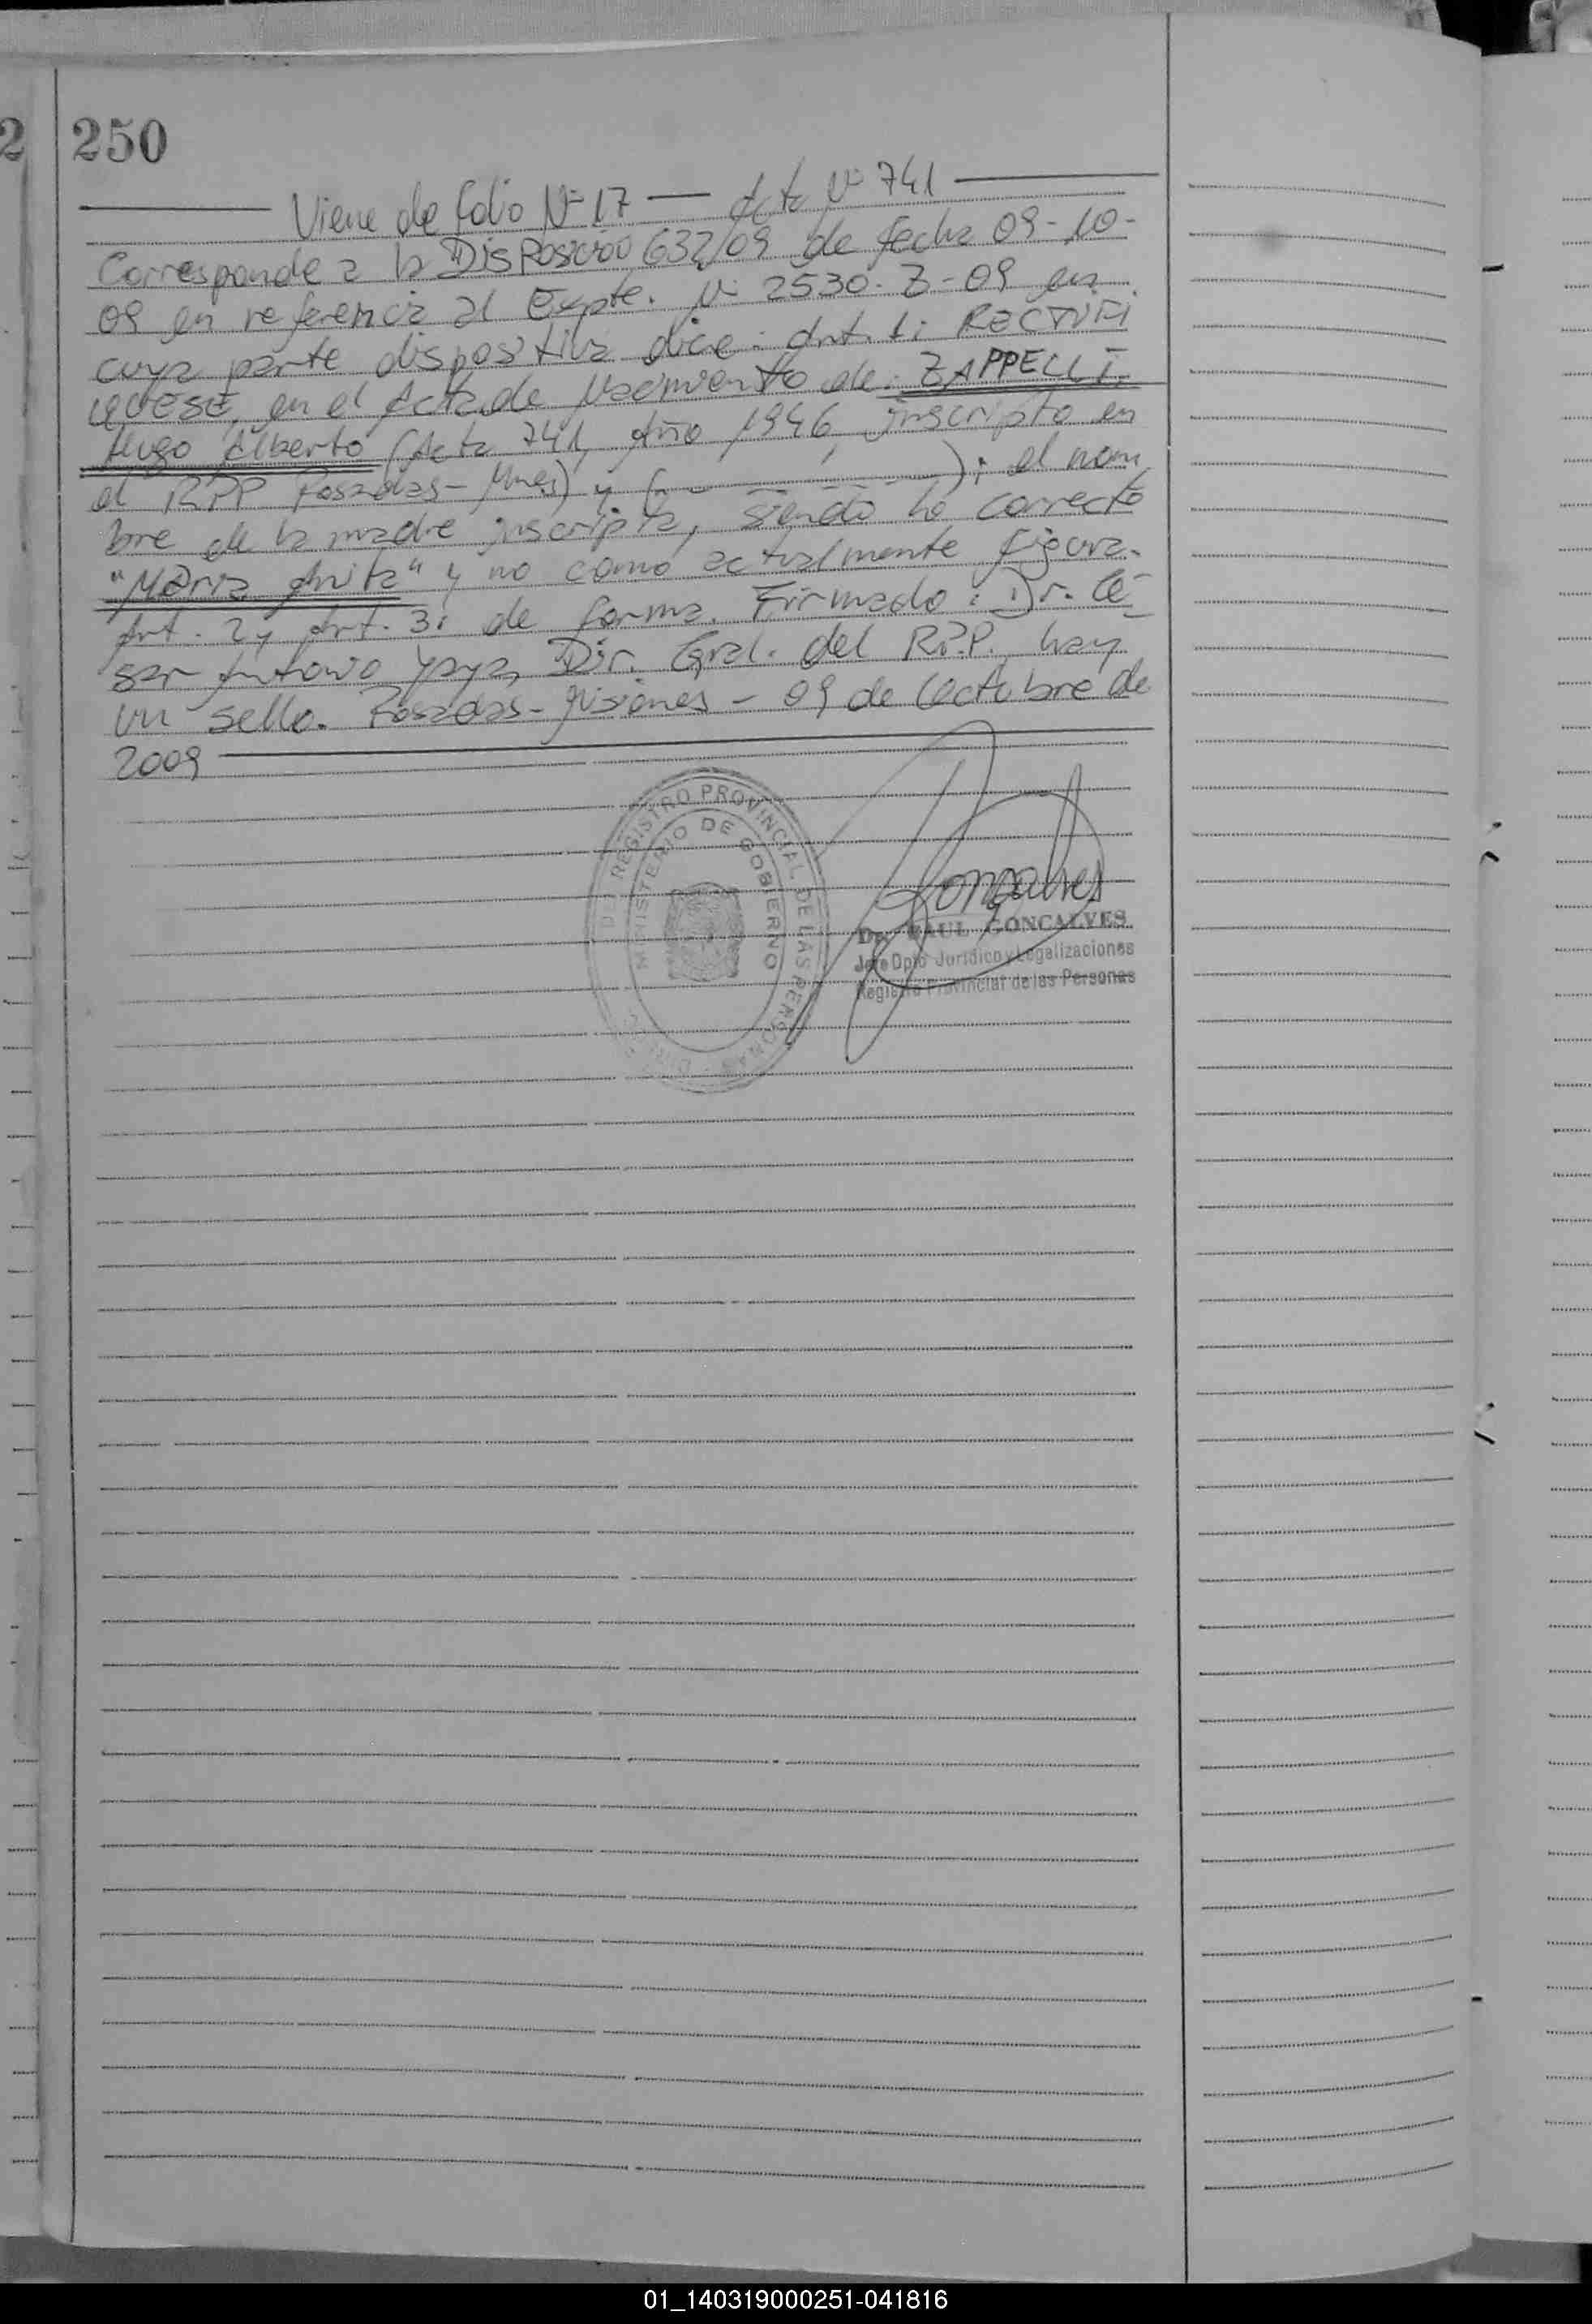 2
250
Viene de folio Nº 17 — Acta Nº 741
Corresponde a la Disposición 632/09 de fecha 09-10-
09 en referencia al Expte. Nº 2530-Z-09 en
cuya parte dispositiva dice: Art. 1: RECTIFI
QUESE, en el Acta de Nacimiento de: ZAPPELLI,
Hugo Alberto (Acta 741, Año 1946, inscripto en
el RPP Posadas-Mnes) y ( — — — — ); el nom
bre de la madre inscripta, siendo lo correcto
"Maria Anita" y no como actualmente figura.
Art. 2 y Art. 3: de forma. Firmado: Dr. Cé-
sar Antonio Yaya, Dir. Gral. del R.P.P. hay
un sello. Posadas-Misiones - 09 de Octubre de
2009
REGISTRO PROVINCIAL DE LAS PERSONAS
MINISTERIO DE GOBIERNO
Gonçalves
Dr. RAUL GONCALVES
Jefe Dpto Jurídico y Legalizaciones
Registro Provincial de las Personas
01_140319000251-041816